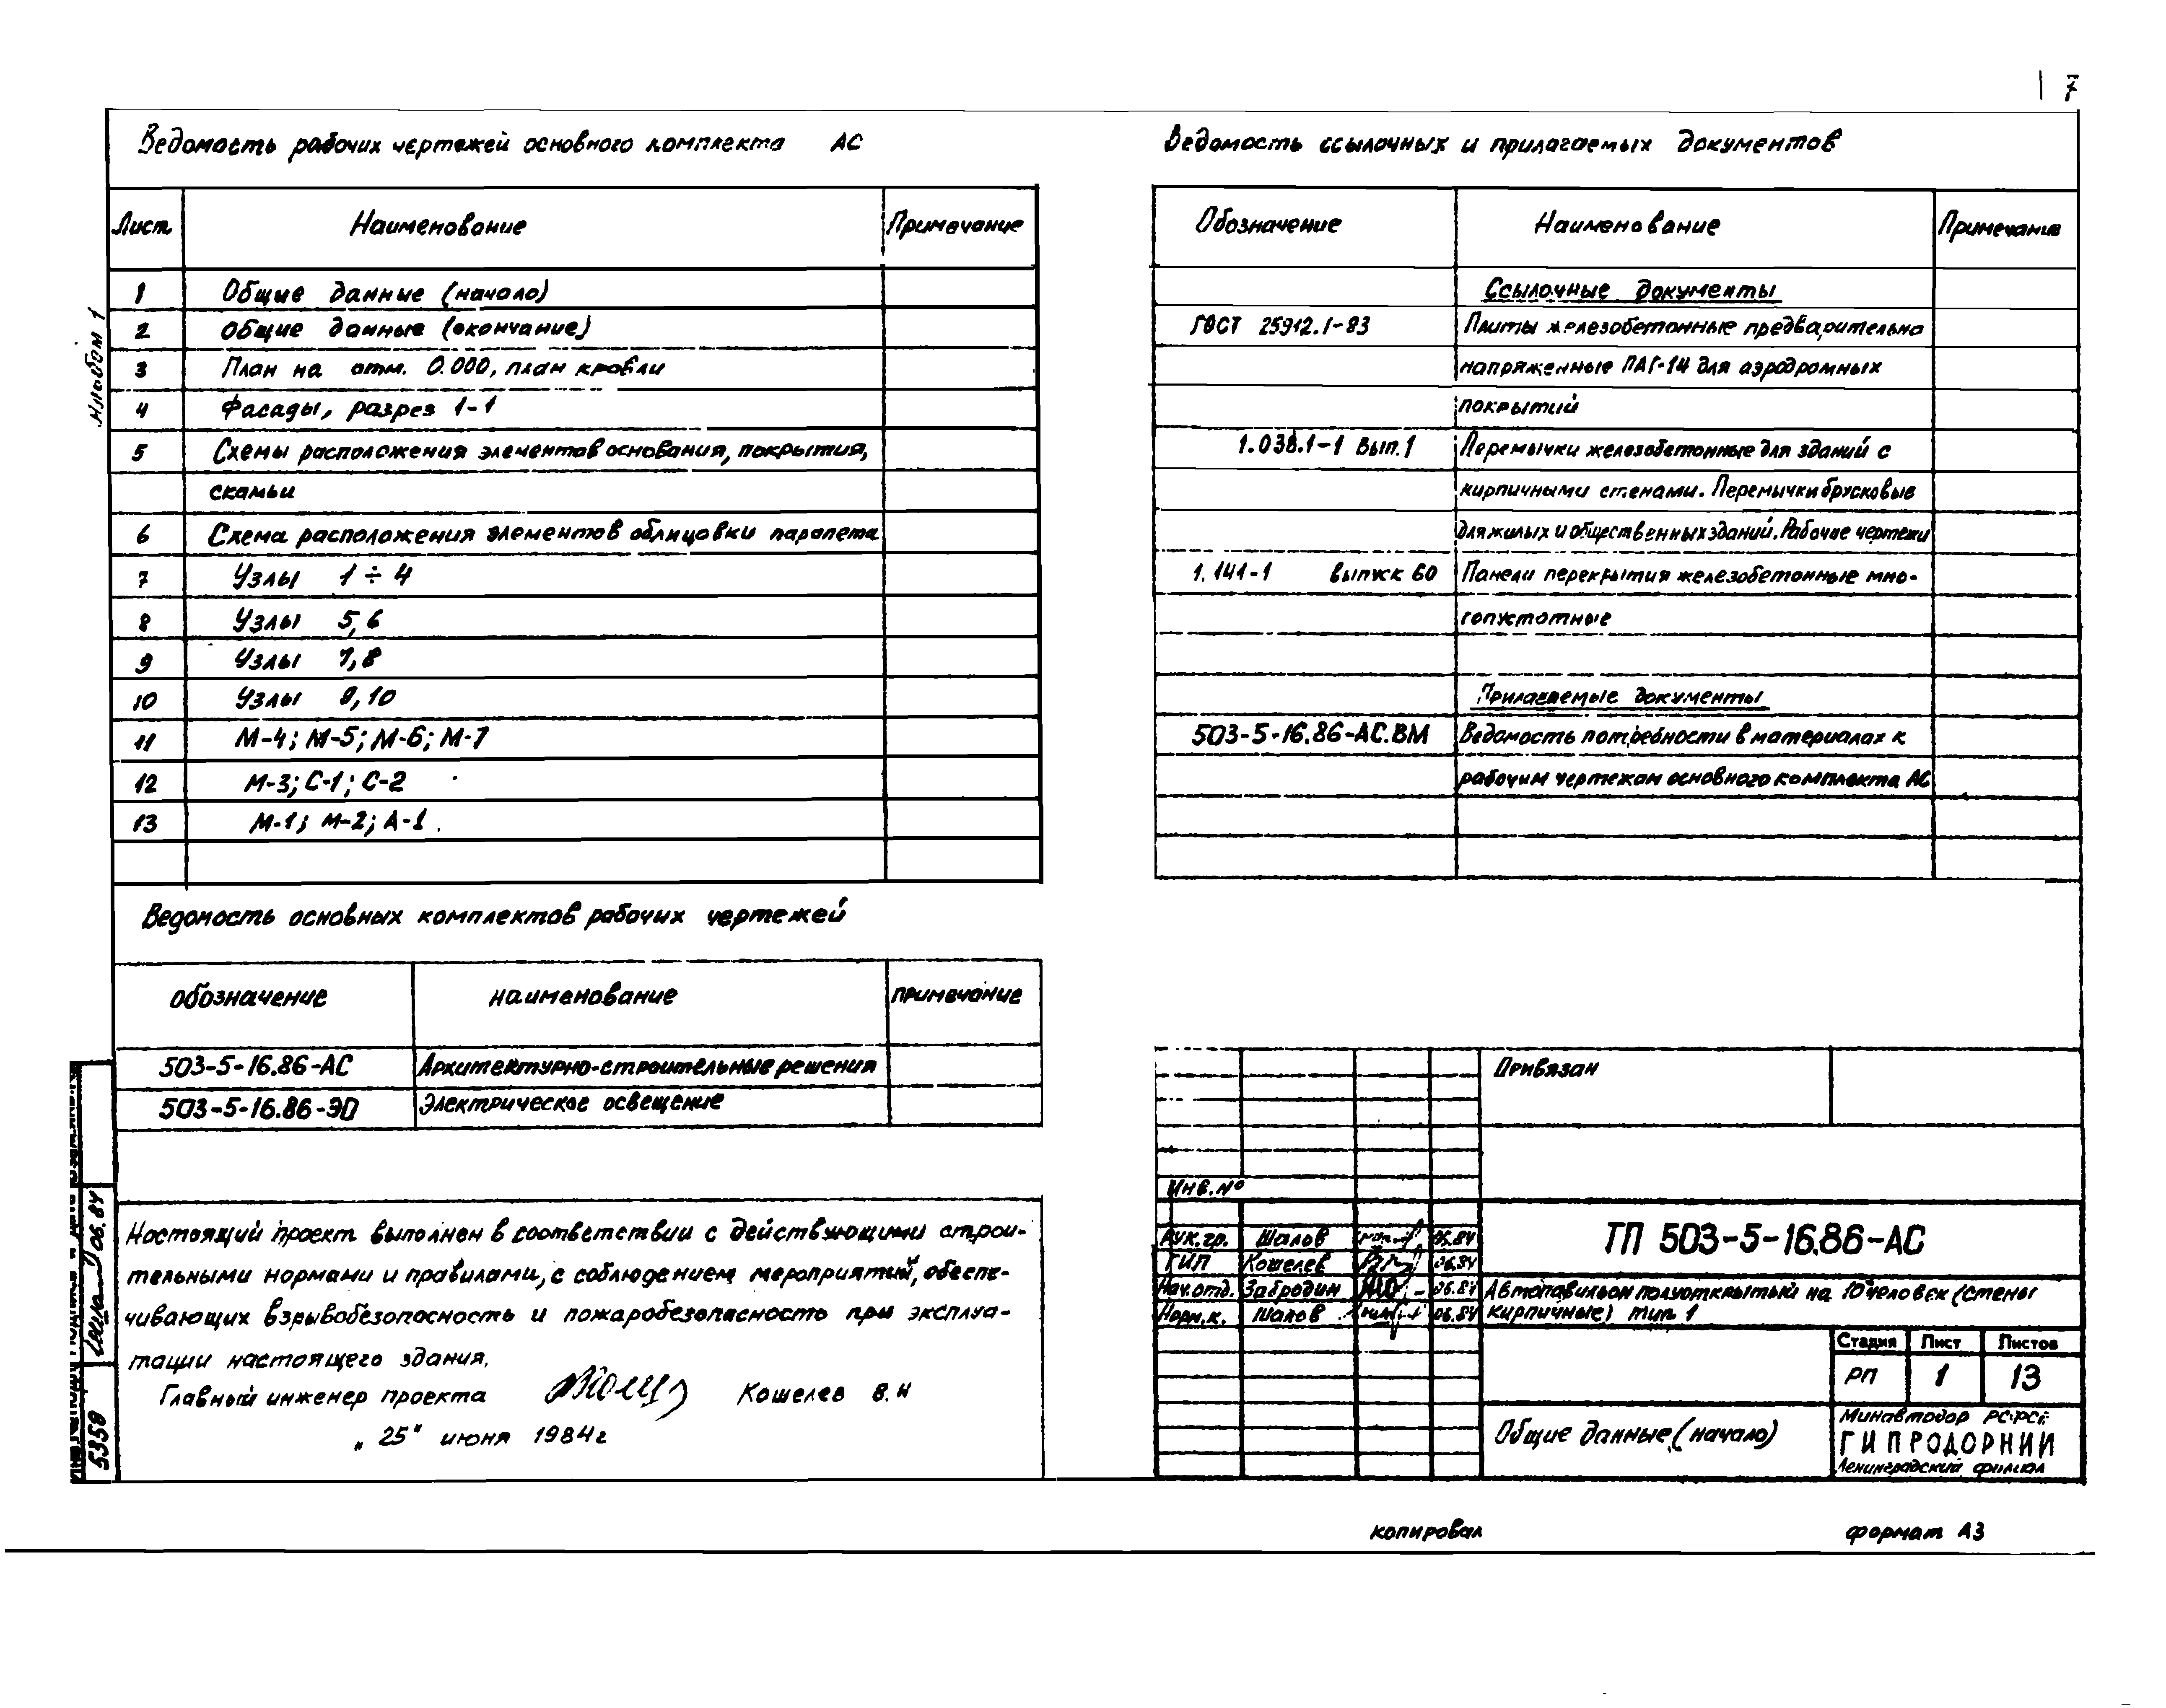 7
Ведомость рабочих чертежей основного комплекта АС
Лист Наименование Примечание
1 Общие данные (начало)
2 Общие данные (окончание)
3 План на отм. 0.000, план кровли
4 Фасады, разрез 1-1
5 Схемы расположения элементов основания, покрытия,
скамьи
6 Схема расположения элементов облицовки парапета
7 Узлы 1÷4
8 Узлы 5,6
9 Узлы 7,8
10 Узлы 9,10
11 М-4; М-5; М-6; М-7
12 М-3; С-1; С-2
13 М-1; М-2; А-1.
Альбом 1
Ведомость основных комплектов рабочих чертежей
обозначение наименование примечание
503-5-16.86-АС Архитектурно-строительные решения
503-5-16.86-ЭО Электрическое освещение
Настоящий проект выполнен в соответствии с действующими строи-
тельными нормами и правилами, с соблюдением мероприятий, обеспе-
чивающих взрывобезопасность и пожаробезопасность при эксплуа-
тации настоящего здания.
Главный инженер проекта Кошелев В.Н
„25" июня 1984г
06.84
5358
Ведомость ссылочных и прилагаемых документов
Обозначение Наименование Примечание
Ссылочные документы
ГОСТ 25912.1-83 Плиты железобетонные предварительно
напряженные ПАГ-14 для аэродромных
покрытий
1.038.1-1 Вып.1 Перемычки железобетонные для зданий с
кирпичными стенами. Перемычки брусковые
для жилых и общественных зданий. Рабочие чертежи
1.141-1 выпуск 60 Панели перекрытия железобетонные мно-
гопустотные
Прилагаемые документы
503-5-16.86-АС.ВМ Ведомость потребности в материалах к
рабочим чертежам основного комплекта АС
Привязан
Инв.№
ТП 503-5-16.86-АС
Рук.гр. Шалов 06.84
ГИП Кошелев 06.84
Нач.отд. Забродин 06.84
Норм.к. Шалов 06.84
Автопавильон полуоткрытый на 10 человек (стены
кирпичные) тип 1
Стадия Лист Листов
РП 1 13
Общие данные (начало)
Минавтодор РСФСР
ГИПРОДОРНИИ
Ленинградский филиал
копировал формат А3